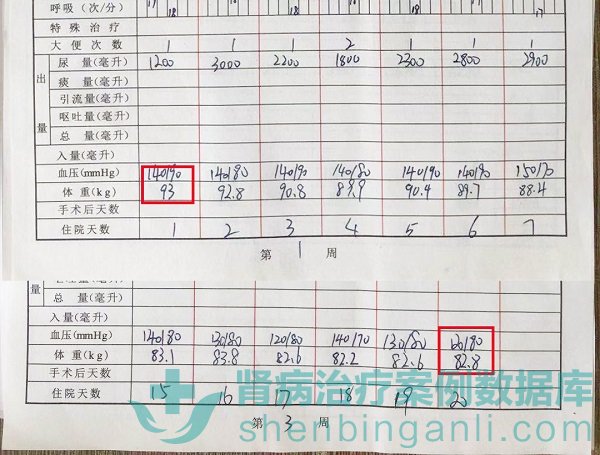 呼吸(次/分) 18 18 17
特殊治疗
大便次数 1 1 1 2 1 1 1
出量
尿量(毫升) 1200 3000 2200 1800 2300 2800 2900
痰量(毫升)
引流量(毫升)
呕吐量(毫升)
总量(毫升)
入量(毫升)
血压(mmHg) 140/90 140/80 140/90 140/80 140/90 140/90 150/70
体重(kg) 93 92.8 90.8 89.9 90.4 89.7 88.4
手术后天数
住院天数 1 2 3 4 5 6 7
第 1 周
量
总量(毫升)
入量(毫升)
血压(mmHg) 140/80 130/80 120/80 140/70 130/80 120/80
体重(kg) 83.1 83.8 82.6 82.2 82.6 82.8
手术后天数
住院天数 15 16 17 18 19 20
第 3 周
肾病治疗案例数据库
shenbinganli.com